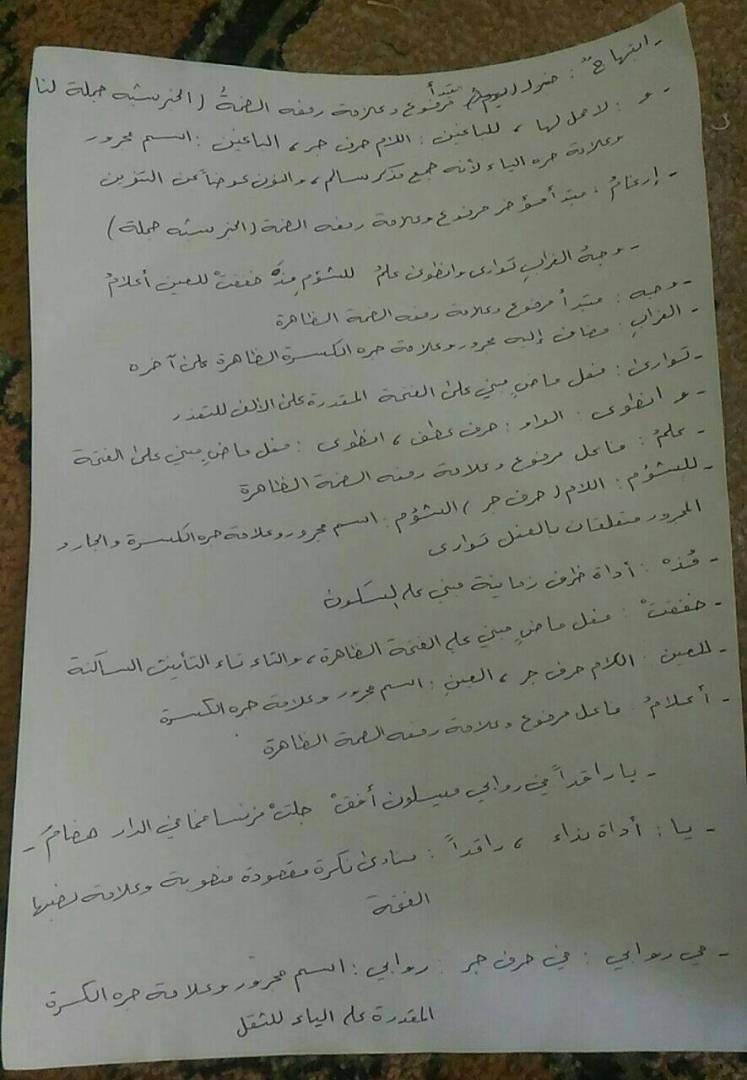 - ابتهاجٌ : مبتدأ مرفوع وعلامة رفعه الضمةُ ( الخبر شبه جملة لنا
- و : لا محل لها ، للباغين : اللام حرف جر ، الباغين : اسم مجرور
وعلامة جره الياء لأنه جمع مذكر سالم ، والنون عوضاً عن التنوين
- إرغامُ : مبتدأ مؤخر مرفوع وعلامة رفعه الضمة ( الخبر شبه جملة )
- وجهُ الغرابِ توارى وانطوى علمٌ للشؤم مِذْ خفقتْ للعين أعلامُ
- وجه : مبتدأ مرفوع وعلامة رفعه الضمة الظاهرة
- الغرابِ : مضاف إليه مجرور وعلامة جره الكسرة الظاهرة على آخره
- توارى : فعل ماضٍ مبني على الفتحة المقدرة على الألف للتعذر
- و انطوى : الواو : حرف عطف ، انطوى : فعل ماضٍ مبني على الفتحة
- علمٌ : فاعل مرفوع وعلامة رفعه الضمة الظاهرة
- للشؤم : اللام ( حرف جر ) الشؤم : اسم مجرور وعلامة جره الكسرة والجار و
المجرور متعلقان بالفعل توارى
- مُذْ : أداة ظرف زمانية مبني على السكون
- خفقتْ : فعل ماضٍ مبني على الفتحة الظاهرة ، والتاء تاء التأنيث الساكنة
- للعين : اللام حرف جر ، العينِ : اسم مجرور وعلامة جره الكسرة
- أعلامُ : فاعل مرفوع وعلامة رفعه الضمة الظاهرة
- يا راقداً في روابي ميسلون أفقْ جلتْ فرنسا فما في الدار هضامُ -
- يا : أداة نداء ، راقداً : منادى نكرة مقصودة منصوبة وعلامة نصبها
الفتحة
- في روابي : في حرف جر : روابي : اسم مجرور وعلامة جره الكسرة
المقدرة على الياء للثقل